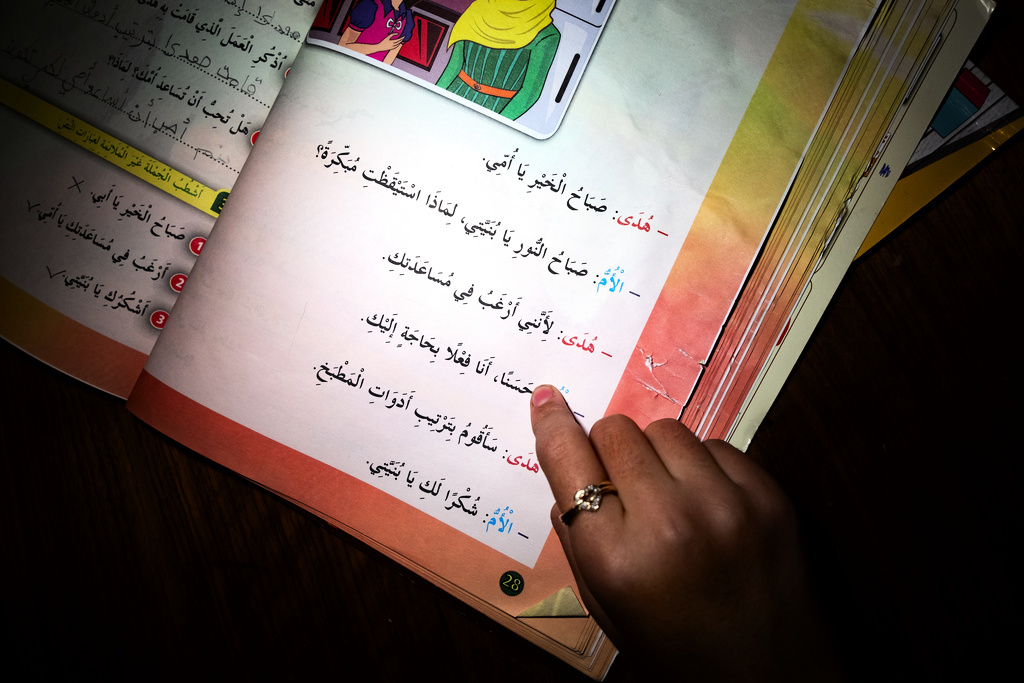 – هُدَى: صَبَاحُ الْخَيْرِ يَا أُمِّي.
– الْأُمُّ: صَبَاحُ النُّورِ يَا بُنَيَّتِي، لِمَاذَا اسْتَيْقَظْتِ مُبَكِّرَةً؟
– هُدَى: لِأَنَّنِي أَرْغَبُ فِي مُسَاعَدَتِكِ.
– حَسَنًا، أَنَا فِعْلًا بِحَاجَةٍ إِلَيْكِ.
هُدَى: سَأَقُومُ بِتَرْتِيبِ أَدَوَاتِ الْمَطْبَخِ.
– الْأُمُّ: شُكْرًا لَكِ يَا بُنَيَّتِي.
28
أَذْكُرِ الْعَمَلَ الَّذِي قَامَتْ بِهِ هُدَى
هَلْ تُحِبُّ أَنْ تُسَاعِدَ أُمَّكَ؟ لِمَاذَا؟
أَشْطُبُ الْجُمْلَةَ غَيْرَ الْمُلَائِمَةِ لِعِبَارَاتِ النَّصِّ
1 صَبَاحُ الْخَيْرِ يَا أَبِي. ×
2 أَرْغَبُ فِي مُسَاعَدَتِكِ يَا أُمِّي. ✓
3 أَشْكُرُكِ يَا بُنَيَّتِي. ✓